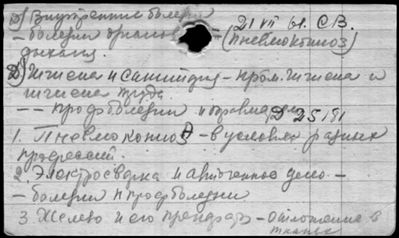 D) Внутренние болезни 21 VII 61. С.В.
– болезни органов (Пневмокониоз)
дыхания.
D) Гигиена и Санитария – Пром. гигиена и
гигиена труда
– – Профболезни и травма D 25191
1. Пневмокониоз – в условиях разных
профессий.
2. Электросварка и автогенное дело –
– болезни и профболезни
3. Железо и его препараты – отложение в